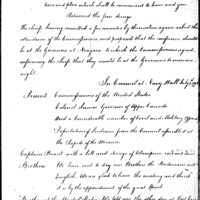 here and place which shall be convenient to hear and you.
Returned the four strings
The chiefs having consulted a few minutes by themselves again asked the
attendance of the Commissioners, and proposed that the conference should
be at the Governors at Niagara to which the Commissioners agreed,
informing the chiefs that they would be at the Governors to-morrow
night.
In Council at Navy Hall July
Present Commissioners of the United States
Colonel Simcoe Governor of Upper Canada
And a considerable number of civil and Military Officers
Deputation of Indians from the Council assembled at
the Rapids of the Miamis.
Captain Brant with a belt and strings of Wampum
Brothers We have met to day our Brothers the Bostonians and
English. We are glad to have the meeting and think
it is by the appointment of the great Spirit.
Brothers of the United States. We told you the other day at Fort Erie